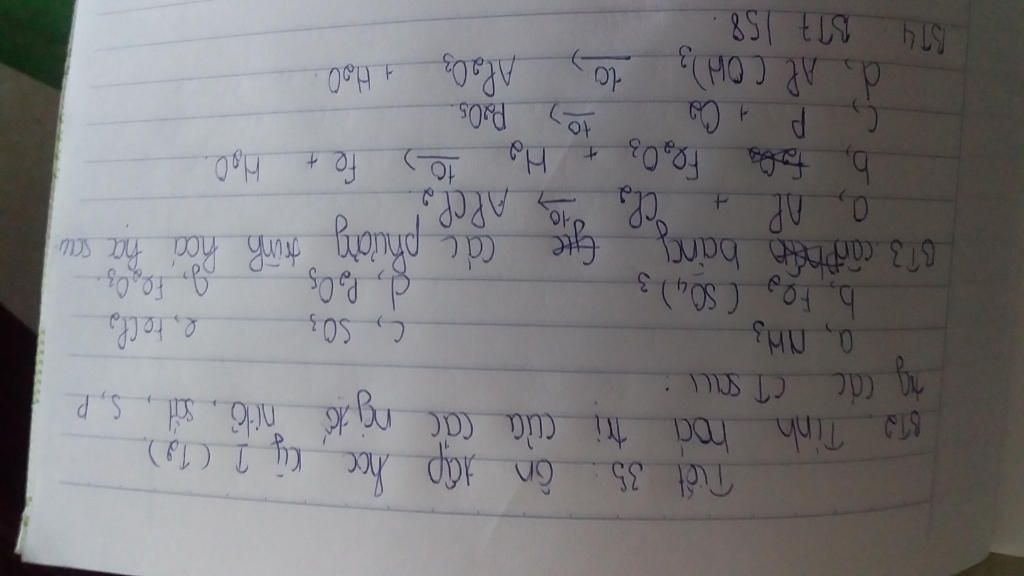 Tiết 35: Ôn tập học kỳ I (T2)
BT2 Tính hoá trị của các ng tố nitơ, sắt, S, P
ng các CT sau:
a, NH3 c, SO3 e, FeCl2
b, Fe2 (SO4)3 d, P2O5 g, Fe2O3.
BT3. cân bằng các phương trình hoá học sau
a, Al + Cl2 to→ AlCl2.
b, Fe2O3 + H2 to→ Fe + H2O.
c, P + O2 to→ P2O5.
d, Al(OH)3 to→ Al2O3 + H2O.
BT4 BT7 / 58.